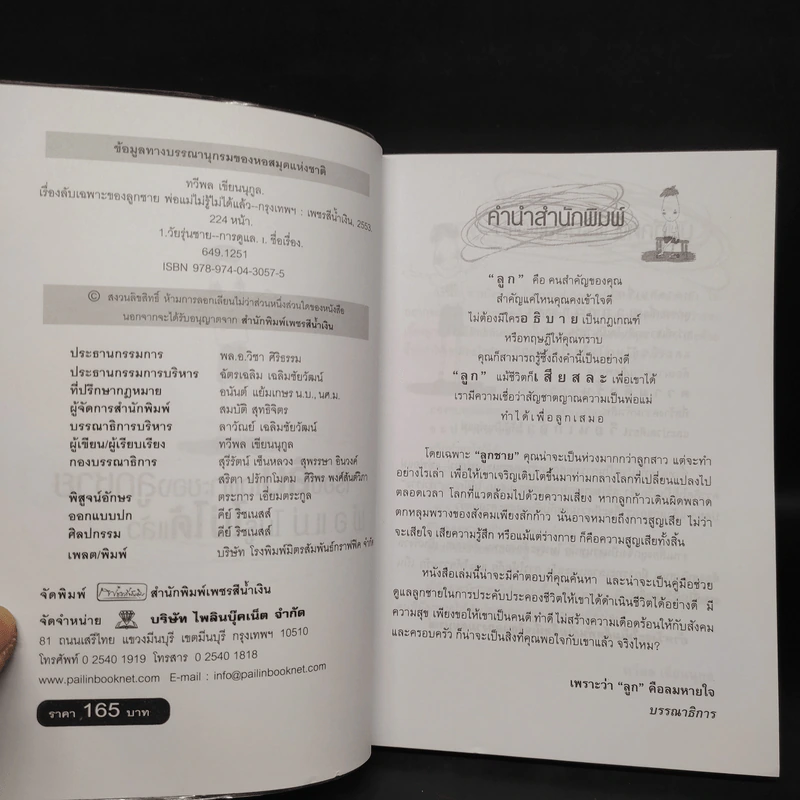 ข้อมูลทางบรรณานุกรมของหอสมุดแห่งชาติ
ทวีพล เขียนนุกูล.
เรื่องลับเฉพาะของลูกชาย พ่อแม่ไม่รู้ไม่ได้แล้ว--กรุงเทพฯ : เพชรสีน้ำเงิน, 2553.
224 หน้า.
1.วัยรุ่นชาย--การดูแล. I. ชื่อเรื่อง.
649.1251
ISBN 978-974-04-3057-5
© สงวนลิขสิทธิ์ ห้ามการลอกเลียนไม่ว่าส่วนหนึ่งส่วนใดของหนังสือ
นอกจากจะได้รับอนุญาตจาก สำนักพิมพ์เพชรสีน้ำเงิน
ประธานกรรมการ พล.อ.วิชา ศิริธรรม
ประธานกรรมการบริหาร ฉัตรเฉลิม เฉลิมชัยวัฒน์
ที่ปรึกษากฎหมาย อนันต์ แย้มเกษร น.บ., นศ.ม.
ผู้จัดการสำนักพิมพ์ สมบัติ สุทธิจิตร
บรรณาธิการบริหาร ลาวัณย์ เฉลิมชัยวัฒน์
ผู้เขียน/ผู้เรียบเรียง ทวีพล เขียนนุกูล
กองบรรณาธิการ สุรีรัตน์ เซ็นหลวง สุพรรษา อินวงค์
สริตา ปรักกโมดม ศิริพร พงศ์สันติวิภา
พิสูจน์อักษร ตระการ เอี่ยมตระกูล
ออกแบบปก คีย์ ริชเนสส์
ศิลปกรรม คีย์ ริชเนสส์
เพลต/พิมพ์ บริษัท โรงพิมพ์มิตรสัมพันธ์กราฟฟิค จำกัด
จัดพิมพ์ สำนักพิมพ์เพชรสีน้ำเงิน
จัดจำหน่าย บริษัท ไพลินบุ๊คเน็ต จำกัด
81 ถนนเสรีไทย แขวงมีนบุรี เขตมีนบุรี กรุงเทพฯ 10510
โทรศัพท์ 0 2540 1919 โทรสาร 0 2540 1818
www.pailinbooknet.com E-mail : info@pailinbooknet.com
ราคา 165 บาท
คำนำสำนักพิมพ์
“ลูก” คือ คนสำคัญของคุณ
สำคัญแค่ไหนคุณคงเข้าใจดี
ไม่ต้องมีใครอธิบายเป็นกฎเกณฑ์
หรือทฤษฎีให้คุณทราบ
คุณก็สามารถรู้ซึ้งถึงคำนี้เป็นอย่างดี
“ลูก” แม้ชีวิตก็เสียสละเพื่อเขาได้
เรามีความเชื่อว่าสัญชาตญาณความเป็นพ่อแม่
ทำได้เพื่อลูกเสมอ
โดยเฉพาะ “ลูกชาย” คุณน่าจะเป็นห่วงมากกว่าลูกสาว แต่จะทำ
อย่างไรเล่า เพื่อให้เขาเจริญเติบโตขึ้นมาท่ามกลางโลกที่เปลี่ยนแปลงไป
ตลอดเวลา โลกที่แวดล้อมไปด้วยความเสี่ยง หากลูกก้าวเดินผิดพลาด
ตกหลุมพรางของสังคมเพียงสักก้าว นั่นอาจหมายถึงการสูญเสีย ไม่ว่า
จะเสียใจ เสียความรู้สึก หรือแม้แต่ร่างกาย ก็คือความสูญเสียทั้งสิ้น
หนังสือเล่มนี้น่าจะมีคำตอบที่คุณค้นหา และน่าจะเป็นคู่มือช่วย
ดูแลลูกชายในการประคับประคองชีวิตให้เขาได้ดำเนินชีวิตได้อย่างดี มี
ความสุข เพียงขอให้เขาเป็นคนดี ทำดี ไม่สร้างความเดือดร้อนให้กับสังคม
และครอบครัว ก็น่าจะเป็นสิ่งที่คุณพอใจกับเขาแล้ว จริงไหม?
เพราะว่า “ลูก” คือลมหายใจ
บรรณาธิการ